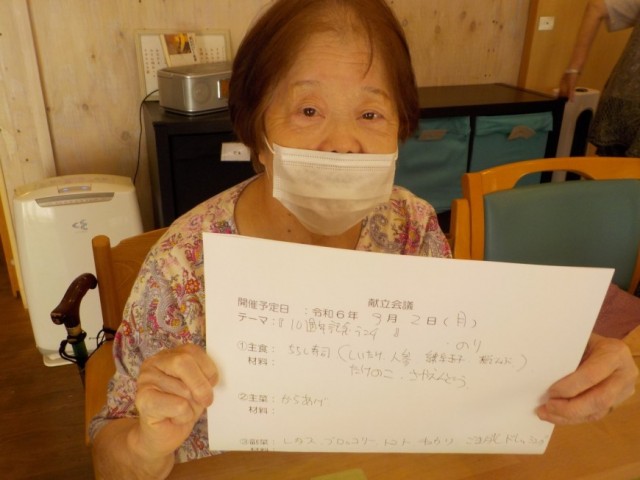 献立会議
開催予定日 : 令和6年 9月 2日 (月)
テーマ : 〃10周年記念ランチ〃
のり
①主食 : ちらし寿司 (しいたけ 人参 錦糸玉子
材料 たけのこ . さやえんどう
②主菜 : からあげ
材料 :
③副菜 : レタス ブロッコリー トマト きゅうり ごま